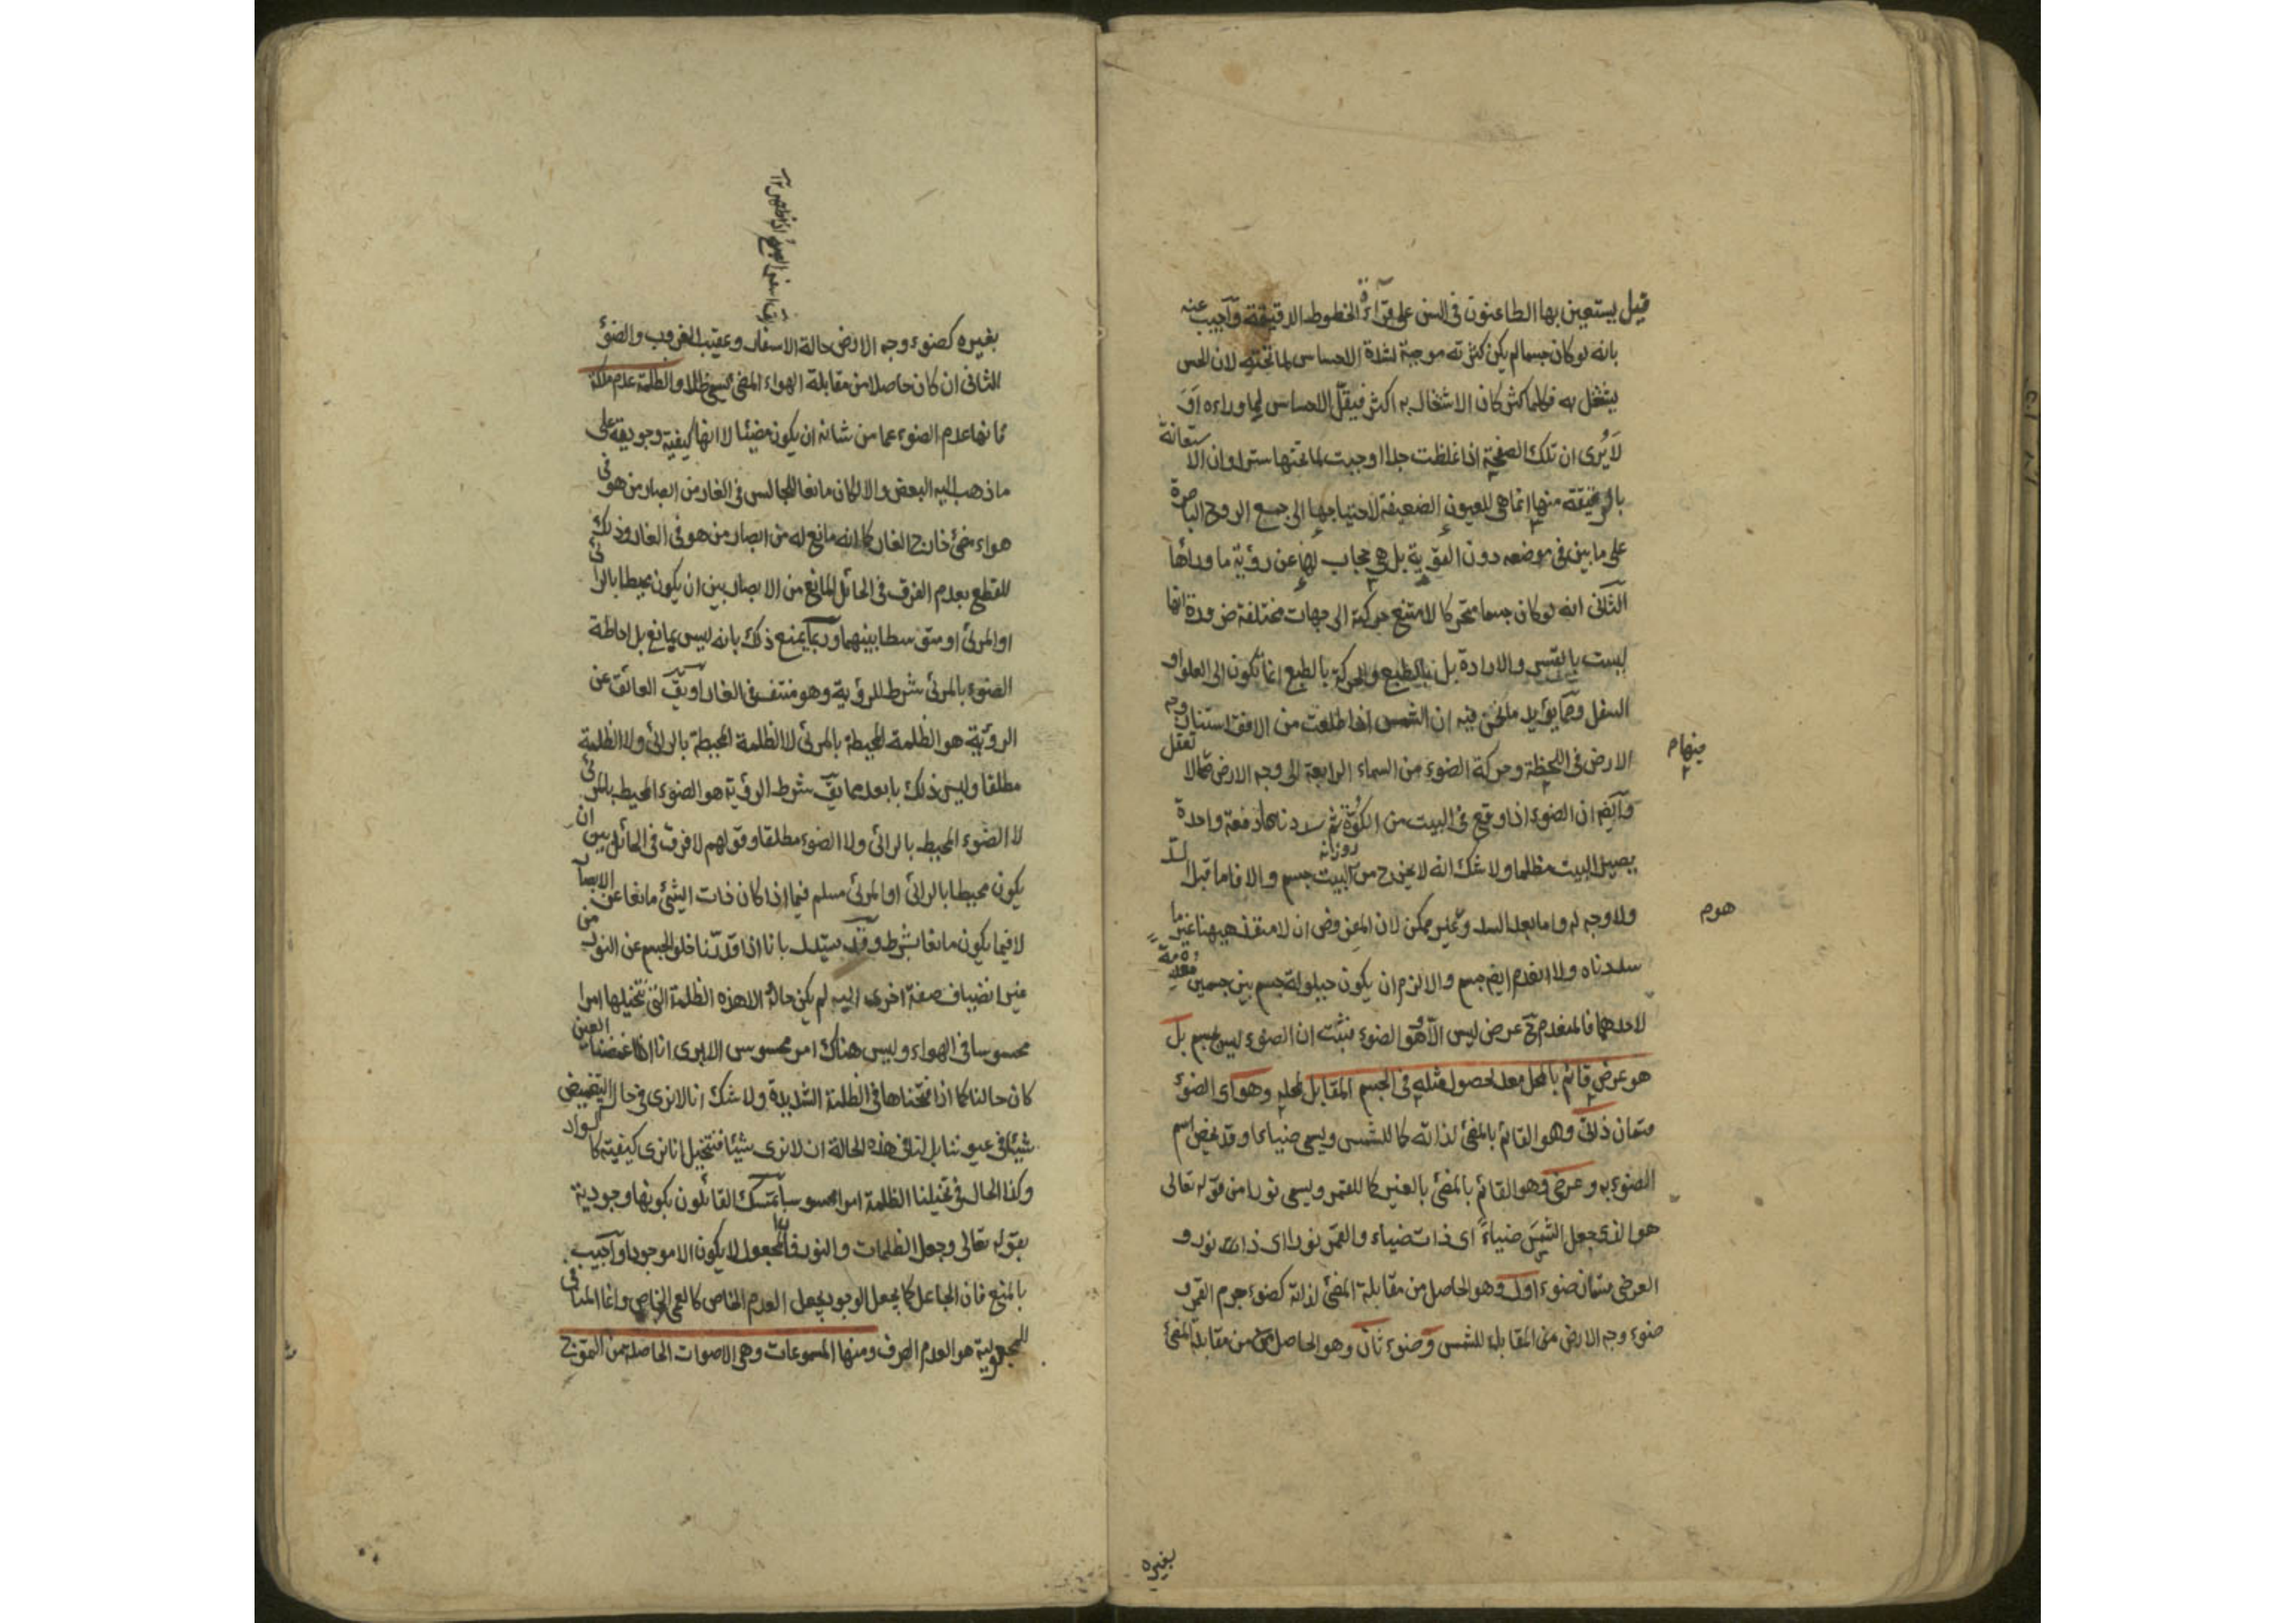 قيل يستعين بها الطاعنون في السن على قراءة الخطوط الدقيقة وآجيب عنه
بانه لو كان جسما لم يكن كثرته موجبة لشدة الاحساس لما تحته لان الحس
يشتغل به فكلما كثر كان الاشتغال به اكثر فيقل الاحساس لما وراءه اَوَ
لَا يُرى ان تلك الصفحة اذا غلظت جدا اوجبت لما تحتها سترا وان الاستعانة
بالرقيقة منها انما هي للعيون الضعيفة لاحتياجها الى جمع الروح الباصرة
على ما بين في موضعه دون القوية بل هي حجاب لها عن رؤية ما وراءها
الثاني انه لو كان جسما متحركا لامتنع حركته الى جهات مختلفة ضرورة انها
ليست بالقسر والارادة بل بالطبع والحركة بالطبع انما تكون الى العلو او
السفل ومما يؤيد ما نحن فيه ان الشمس اذا طلعت من الافق استنار وجه
الارض في اللحظة وحركة الضوء من السماء الرابعة الى وجه الارض مما لا تعقل
وآيضا ان الضوء اذا وقع في البيت من الكوّة ثم سددناها دفعة واحدة
روزانه
يصير البيت مظلما ولا شك انه لا يخرج من البيت جسم والا فاما قبل السد
ولا وجه له واما بعد السد وغير ممكن لان المفروض ان لا منفذ ههنا غير ما
سددناه ولا انعدم ايضا جسم والا لزم ان يكون حيلولة جسم بين جسمين معدمة
لاحدهما فالمنعدم ح عرض ليس الا هو الضوء فثبت ان الضوء ليس بجسم بل
هو عرض قائم بالمحل معد لحصول مثله في الجسم المقابل لمحله وهو اى الضوء
قسمان ذاتي وهو القائم بالمضئ لذاته كما للشمس ويسمى ضياء وقد يخص اسم
الضوء به وعرضي وهو القائم بالمضئ بالغير كما للقمر ويسمى نورا من قوله تعالى
هو الذى جعل الشمسَ ضياءً اى ذات ضياء والقمر نورا اى ذات نور و
العرضي قسمان ضوء اول وهو الحاصل من مقابلة المضئ لذاته كضوء جرم القمر و
ضوء وجه الارض من المقابلة للشمس وضوء ثان وهو الحاصل من مقابلة المضئ
منهام
هوم
بغيره
بغيره كضوء وجه الارض حالة الاسفار وعقيب الغروب والضوء
الثاني ان كان حاصلا من مقابلة الهواء المضئ يسمى ظلا والظلمة عدم ملكة
فانها عدم الضوء عما من شانه ان يكون مضيئا لا انها كيفية وجودية على
ما ذهب اليه البعض والا لكان مانعا للجالس في الغار من ابصار من هو في
هواء مضئ خارج الغار كما انه مانع له من ابصار من هو في الغار وذلك
للقطع بعدم الفرق في الحائل المانع من الابصار بين ان يكون محيطا بالرائي
او المرئي او متوسطا بينهما وربما يمنع ذلك بانه ليس بمانع بل احاطة
الضوء بالمرئي شرط للرؤية وهو منتف في الغار او يق العائق عن
الرؤية هو الظلمة المحيطة بالمرئي لا الظلمة المحيطة بالرائي ولا الظلمة
مطلقا وليس ذلك بابعد مما يق شرط الرؤية هو الضوء المحيط بالمرئي
لا الضوء المحيط بالرائي ولا الضوء مطلقا وقولهم لا فرق في الحائل بين ان
يكون محيطا بالرائي او المرئي مسلم فيما اذا كان ذات الشئ مانعا عن الابصار
لا فيما يكون مانعا بشرط وقد يستدل بانا اذا قدرنا خلو الجسم عن النور من
غير انضياف صفة اخرى اليه لم يكن حاله الا هذه الظلمة التي نتخيلها امرا
محسوسا في الهواء وليس هناك امر محسوس الا يرى انا اذا غمضنا العين
كان حالنا كما اذا فتحناها في الظلمة الشديدة ولا شك انا لا نرى في حال التغميض
شيئا في عيوننا بل لنا في هذه الحالة ان لا نرى شيئا فنتخيل انا نرى كيفية كالسواد
وكذا الحال في تخيلنا الظلمة امرا محسوسا تمسك القائلون بكونها وجودية
بقوله تعالى وجعل الظلمات والنور فان المجعول لا يكون الا موجودا وآجيب
بالمنع فان الجاعل كما يجعل الوجود يجعل العدم الخاص كالعمى الخاص وانما المنافي
للمجعولية هو العدم الصرف ومنها المسموعات وهي الاصوات الحاصلة من التموج